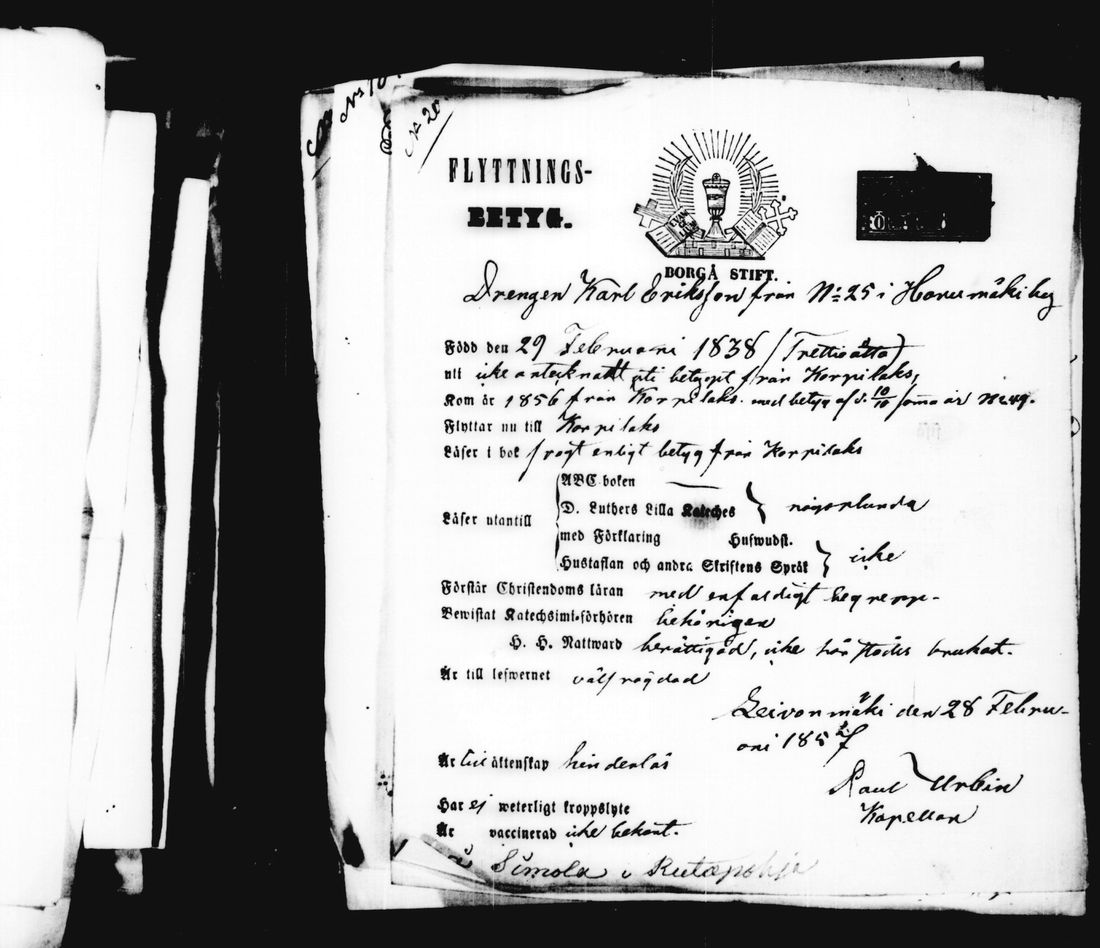 No 10
No 20
FLYTTNINGS-
BETYG.
BORGÅ STIFT.
Drengen Karl Eriksson från No 25 i Havumäki by
Född den 29 Februari 1838 (Trettioåtta)
uti icke antecknatt uti betyget från Korpilaks,
Kom år 1856 från Korpilaks med betyg af d. 10/10 samma år No 49.
Flyttar nu till Korpilaks
Läser i bok svagt enligt betyg från Korpilaks
ABC-boken —
D. Luthers Lilla Kateches
Läser utantill
någorlunda
med Förklaring Hufwudst.
Hustaflan och andra Skriftens Språk
icke
Förstår Christendoms läran med enfaldigt begrepp.
Bewistat Katechsimi-förhören behörigen
H. H. Nattward berättigad, icke här städes brukat.
Är till lefwernet välfrägdad
Leivonmäki den 28 Febru-
ari 185
Är till äktenskap hinderlös
Paul Urbin
Kapellan
Har ej weterligt kroppslyte
Är vaccinerad icke bekant.
Simola i Rutapohja